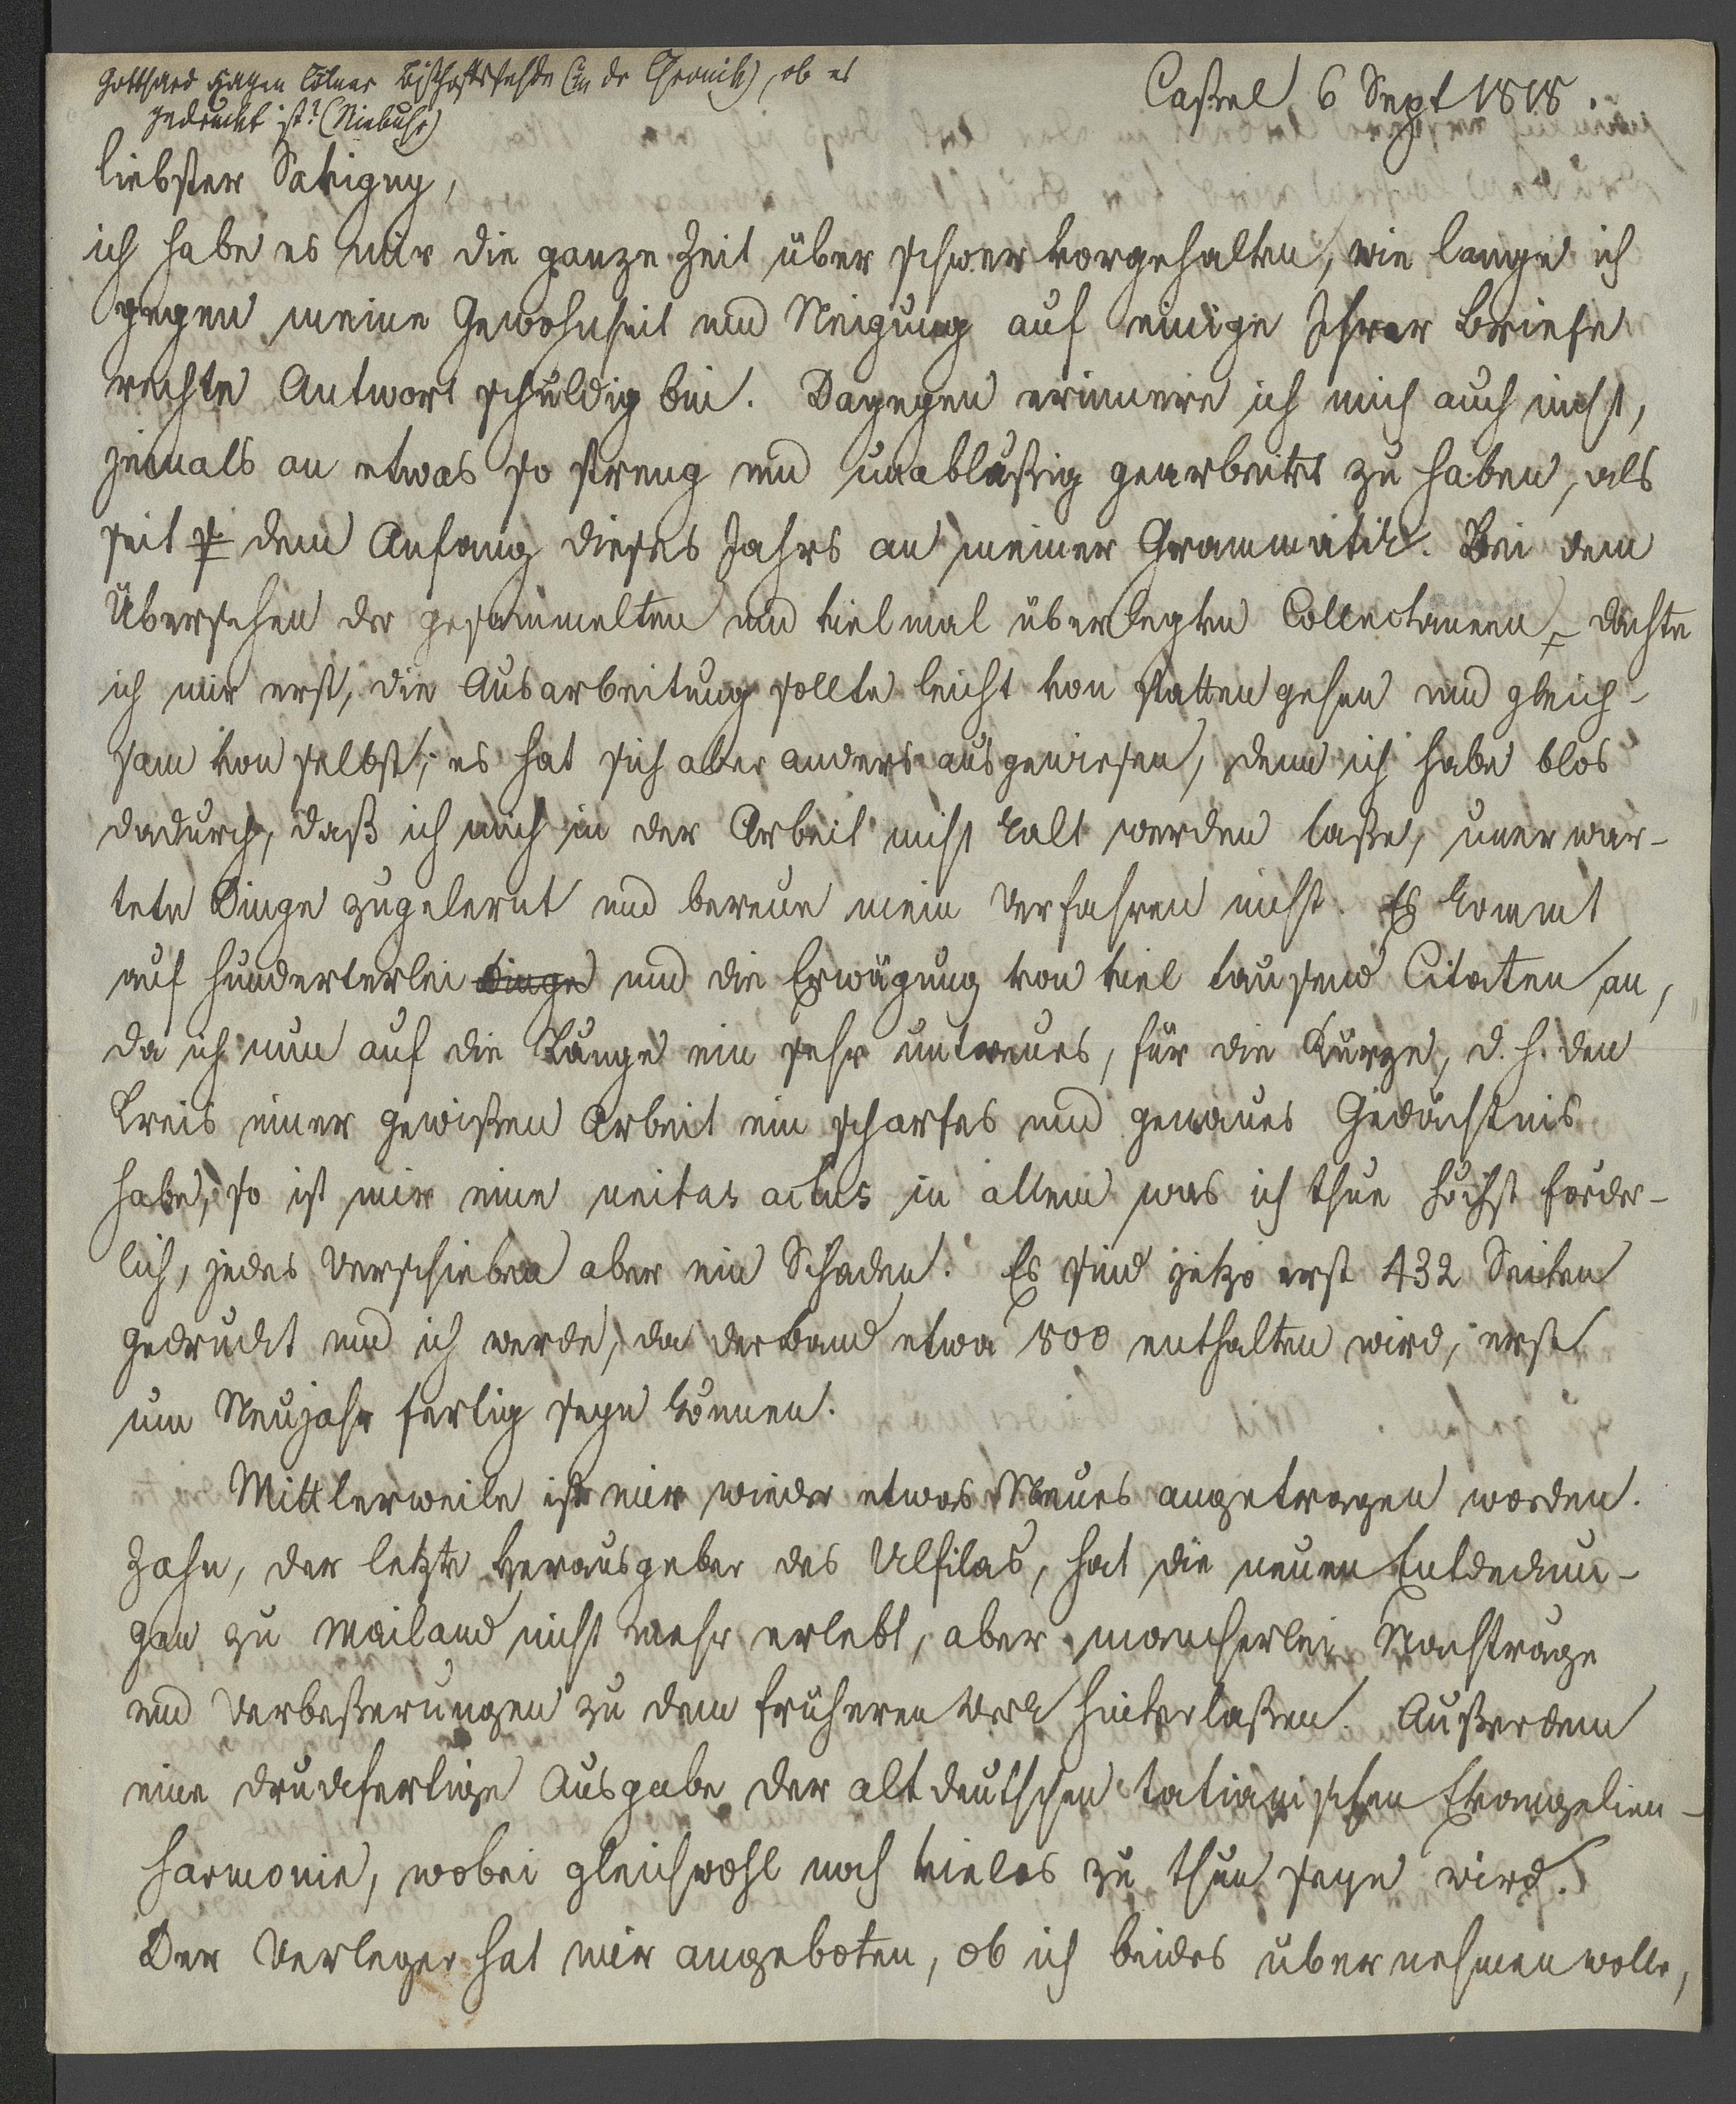 Gotthard Hagen Cölner Bischoffsfehde (in dr Chronik), ob es
gedruckt ist? (Niebuhr)
Caßel 6 Sept 1818.
liebster Savigny,
ich habe es mir die ganze Zeit über schwer vorgehalten, wie lange ich
gegen meine Gewohnheit und Neigung auf einige Ihrer Briefe
rechte Antwort schuldig bin. Dagegen erinnere ich mich auch nicht,
jemals an etwas so streng und unabläßig gearbeitet zu haben, als
seit dem Anfang dieses Jahrs an meiner Grammatik. Bei dem
Übersehen der gesammelten und vielmal überlegten Collectaneen, dachte
ich mir erst, die Ausarbeitung sollte leicht von statten gehen und gleich-
sam von selbst; es hat sich aber anders ausgewiesen, denn ich habe blos
dadurch, daß ich mich in der Arbeit nicht kalt werden laße, unerwar-
tete Dinge zugelernt und bereue mein Verfahren nicht. Es kommt
auf hunderterlei Dinge und die Erwägung von viel tausend Citaten an,
da ich nun auf die Länge ein sehr untreues, für die Kürze, d. h. den
Kreis einer gewißen Arbeit ein scharfes und genaues Gedächtnis
habe, so ist mir eine unitas actus in allem was ich thue höchst förder-
lich, jedes Verschieben aber ein Schaden. Es sind jetzo erst 432 Seiten
gedruckt und ich werde, da der Band etwa 800 enthalten wird, erst
um Neujahr fertig seyn können.
Mittlerweile ist mir wieder etwas Neues angetragen worden.
Zahn, der letzte Herausgeber des Ulfilas, hat die neuen Entdeckun-
gen zu Mailand nicht mehr erlebt, aber mancherlei Nachträge
und Verbeßerungen zu dem früheren Werk hinterlaßen. Außerdem
eine druckfertige Ausgabe der altdeutschen tatianischen Evangelien-
harmonie, wobei gleichwohl noch vieles zu thun seyn wird.
Der Verleger hat mir angeboten, ob ich beides übernehmen wolle,